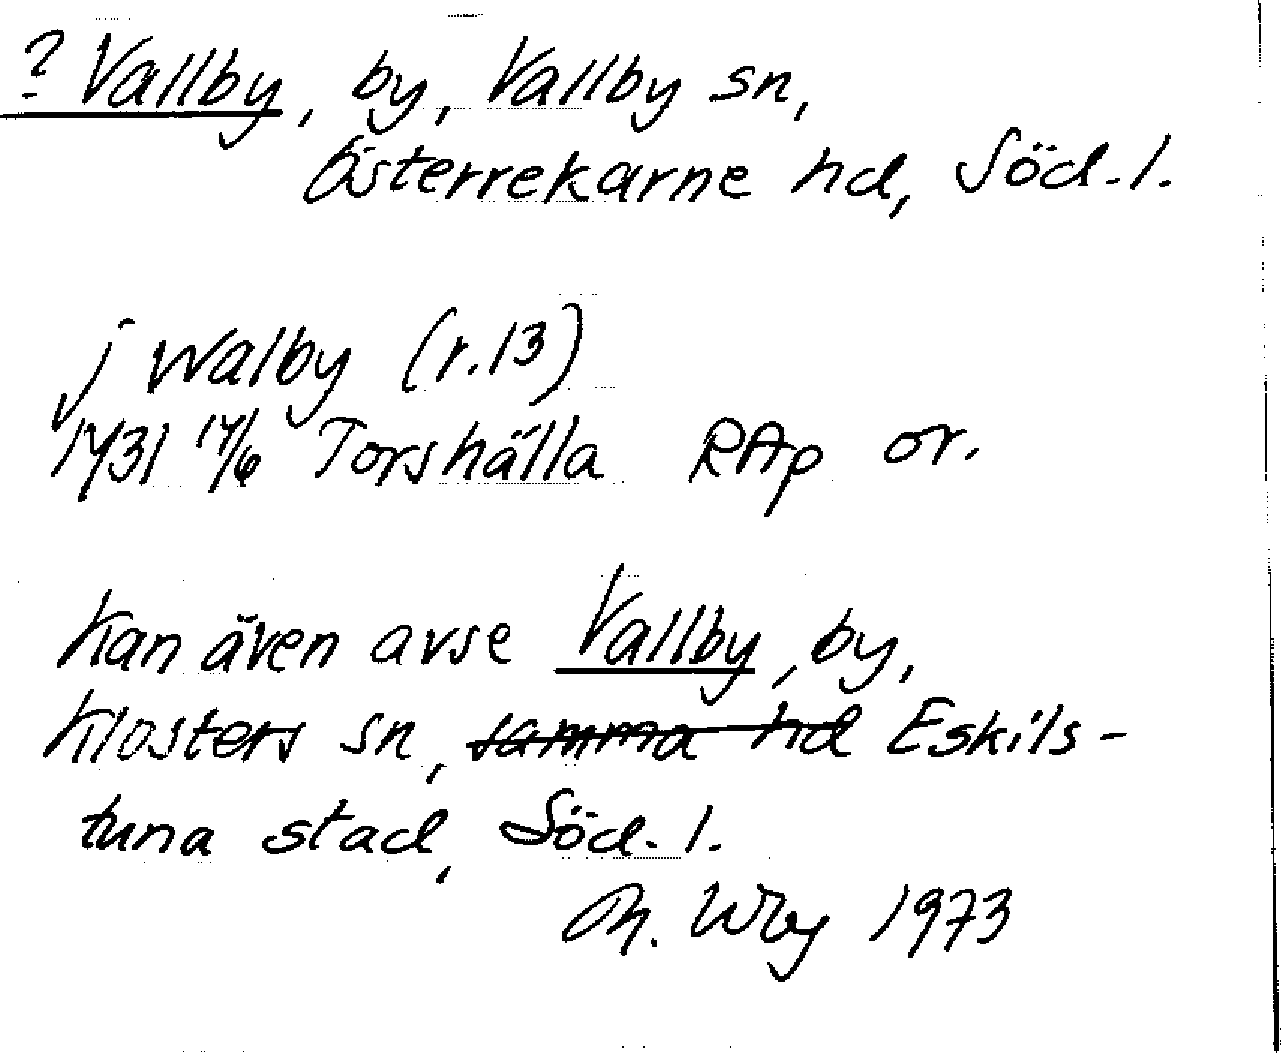 ? Vallby, by, Vallby sn,
Österrekarne hd, Söd. l.
j walby (r. 13)
1431 14/6 Torshälla RAp or.
Kan även avse Vallby, by,
Klosters sn, samma hd Eskils-
tuna stad, Söd. l.
1973